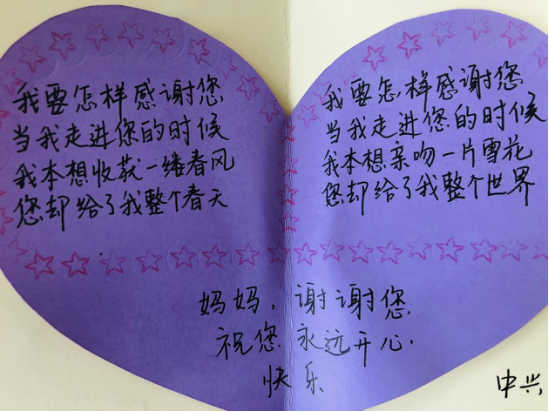 我要怎样感谢您
当我走进您的时候
我本想收获一缕春风
您却给了我整个春天
我要怎样感谢您
当我走进您的时候
我本想亲吻一片雪花
您却给了我整个世界
妈妈，谢谢您
祝您永远开心，
快乐
中兴